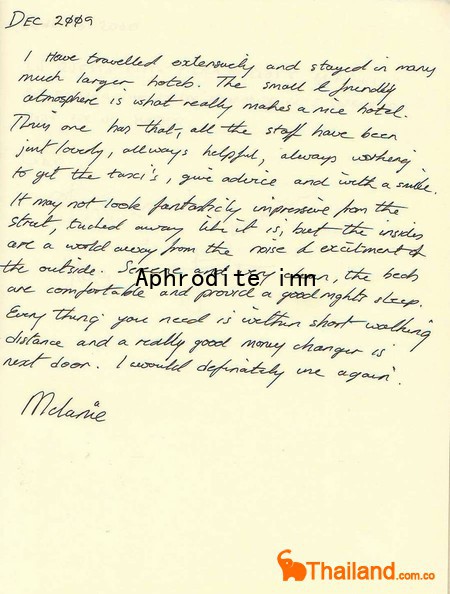 DEC 2009
I Have travelled extensively and stayed in many
much larger hotels. The small & friendly
atmosphere is what really makes a nice hotel.
This one has that, all the staff have been
just lovely, allways helpful, always working
to get the taxi's, give advice and with a smile.
It may not look fantasticly impressive from the
street, tucked away like it is, but the insides
are a world away from the noise & excitment of
the outside. the beds
Aphrodite inn
are comfortable and provid a good nights sleep.
Every thing you need is within short walking
distance and a really good money changer is
next door. I would definately use again.
Melanie
Thailand.com.co